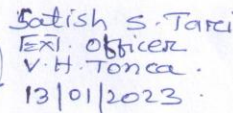 Satish S. Tarei
Ext. Officer
V. H. Tonca.
13/01/2023.